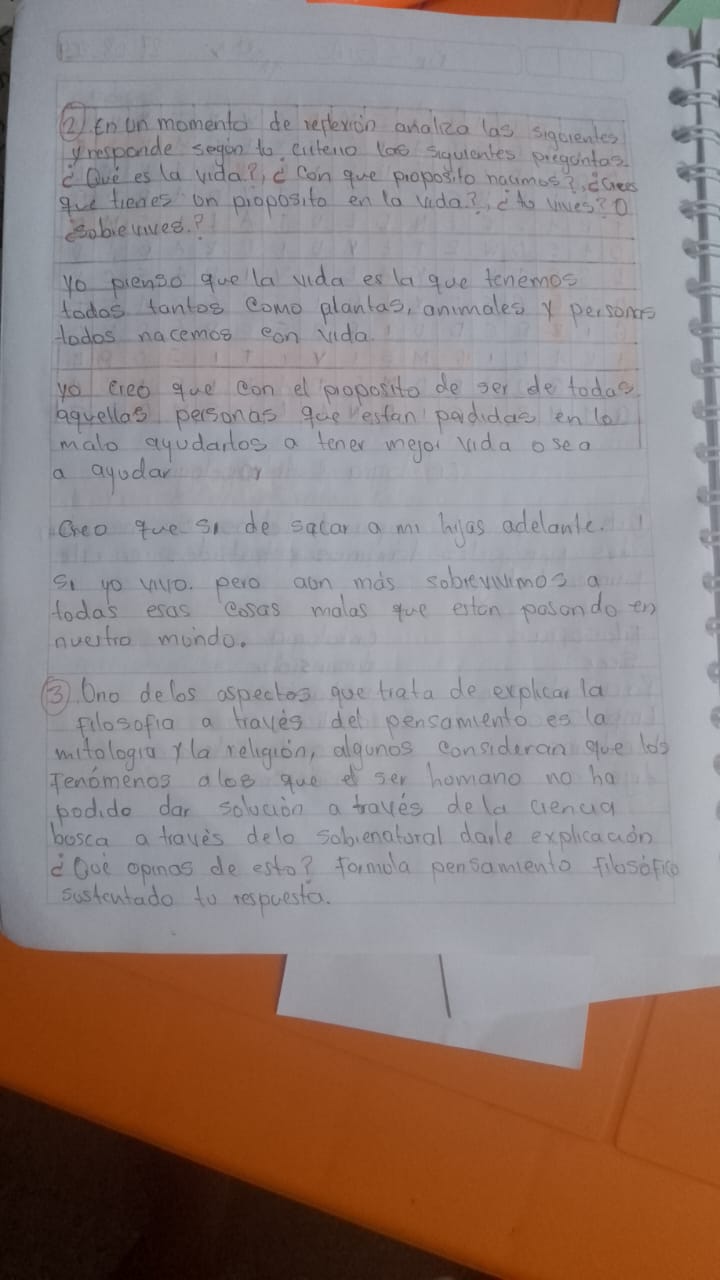 ② En un momento de reflexión analiza las siguientes
y responde según tu criterio las siguientes preguntas.
¿Qué es la vida?, ¿Con que proposito nacimos?, ¿Crees
que tienes un proposito en la vida?, ¿tu vives? O
¿Sobrevives.?
Yo pienso que la vida es la que tenemos
todos tantos como plantas, animales y personas
todos nacemos con vida.
yo creo que con el proposito de ser de todas
aquellas personas que estan perdidas en lo
malo ayudarlos a tener mejor vida o sea
a ayudar
Creo que si de sacar a mi hijas adelante.
Si yo vivo. pero aun más sobrevivimos a
todas esas cosas malas que estan pasando en
nuestro mundo.
③ Uno de los aspectos que trata de explicar la
filosofia a través del pensamiento es la
mitologia y la religión, algunos consideran que los
Fenómenos a los que el ser humano no ha
podido dar solución a través de la ciencia
busca a través de lo sobrenatural darle explicación
¿Qué opinas de esto? formula pensamiento filosófico
sustentado tu respuesta.